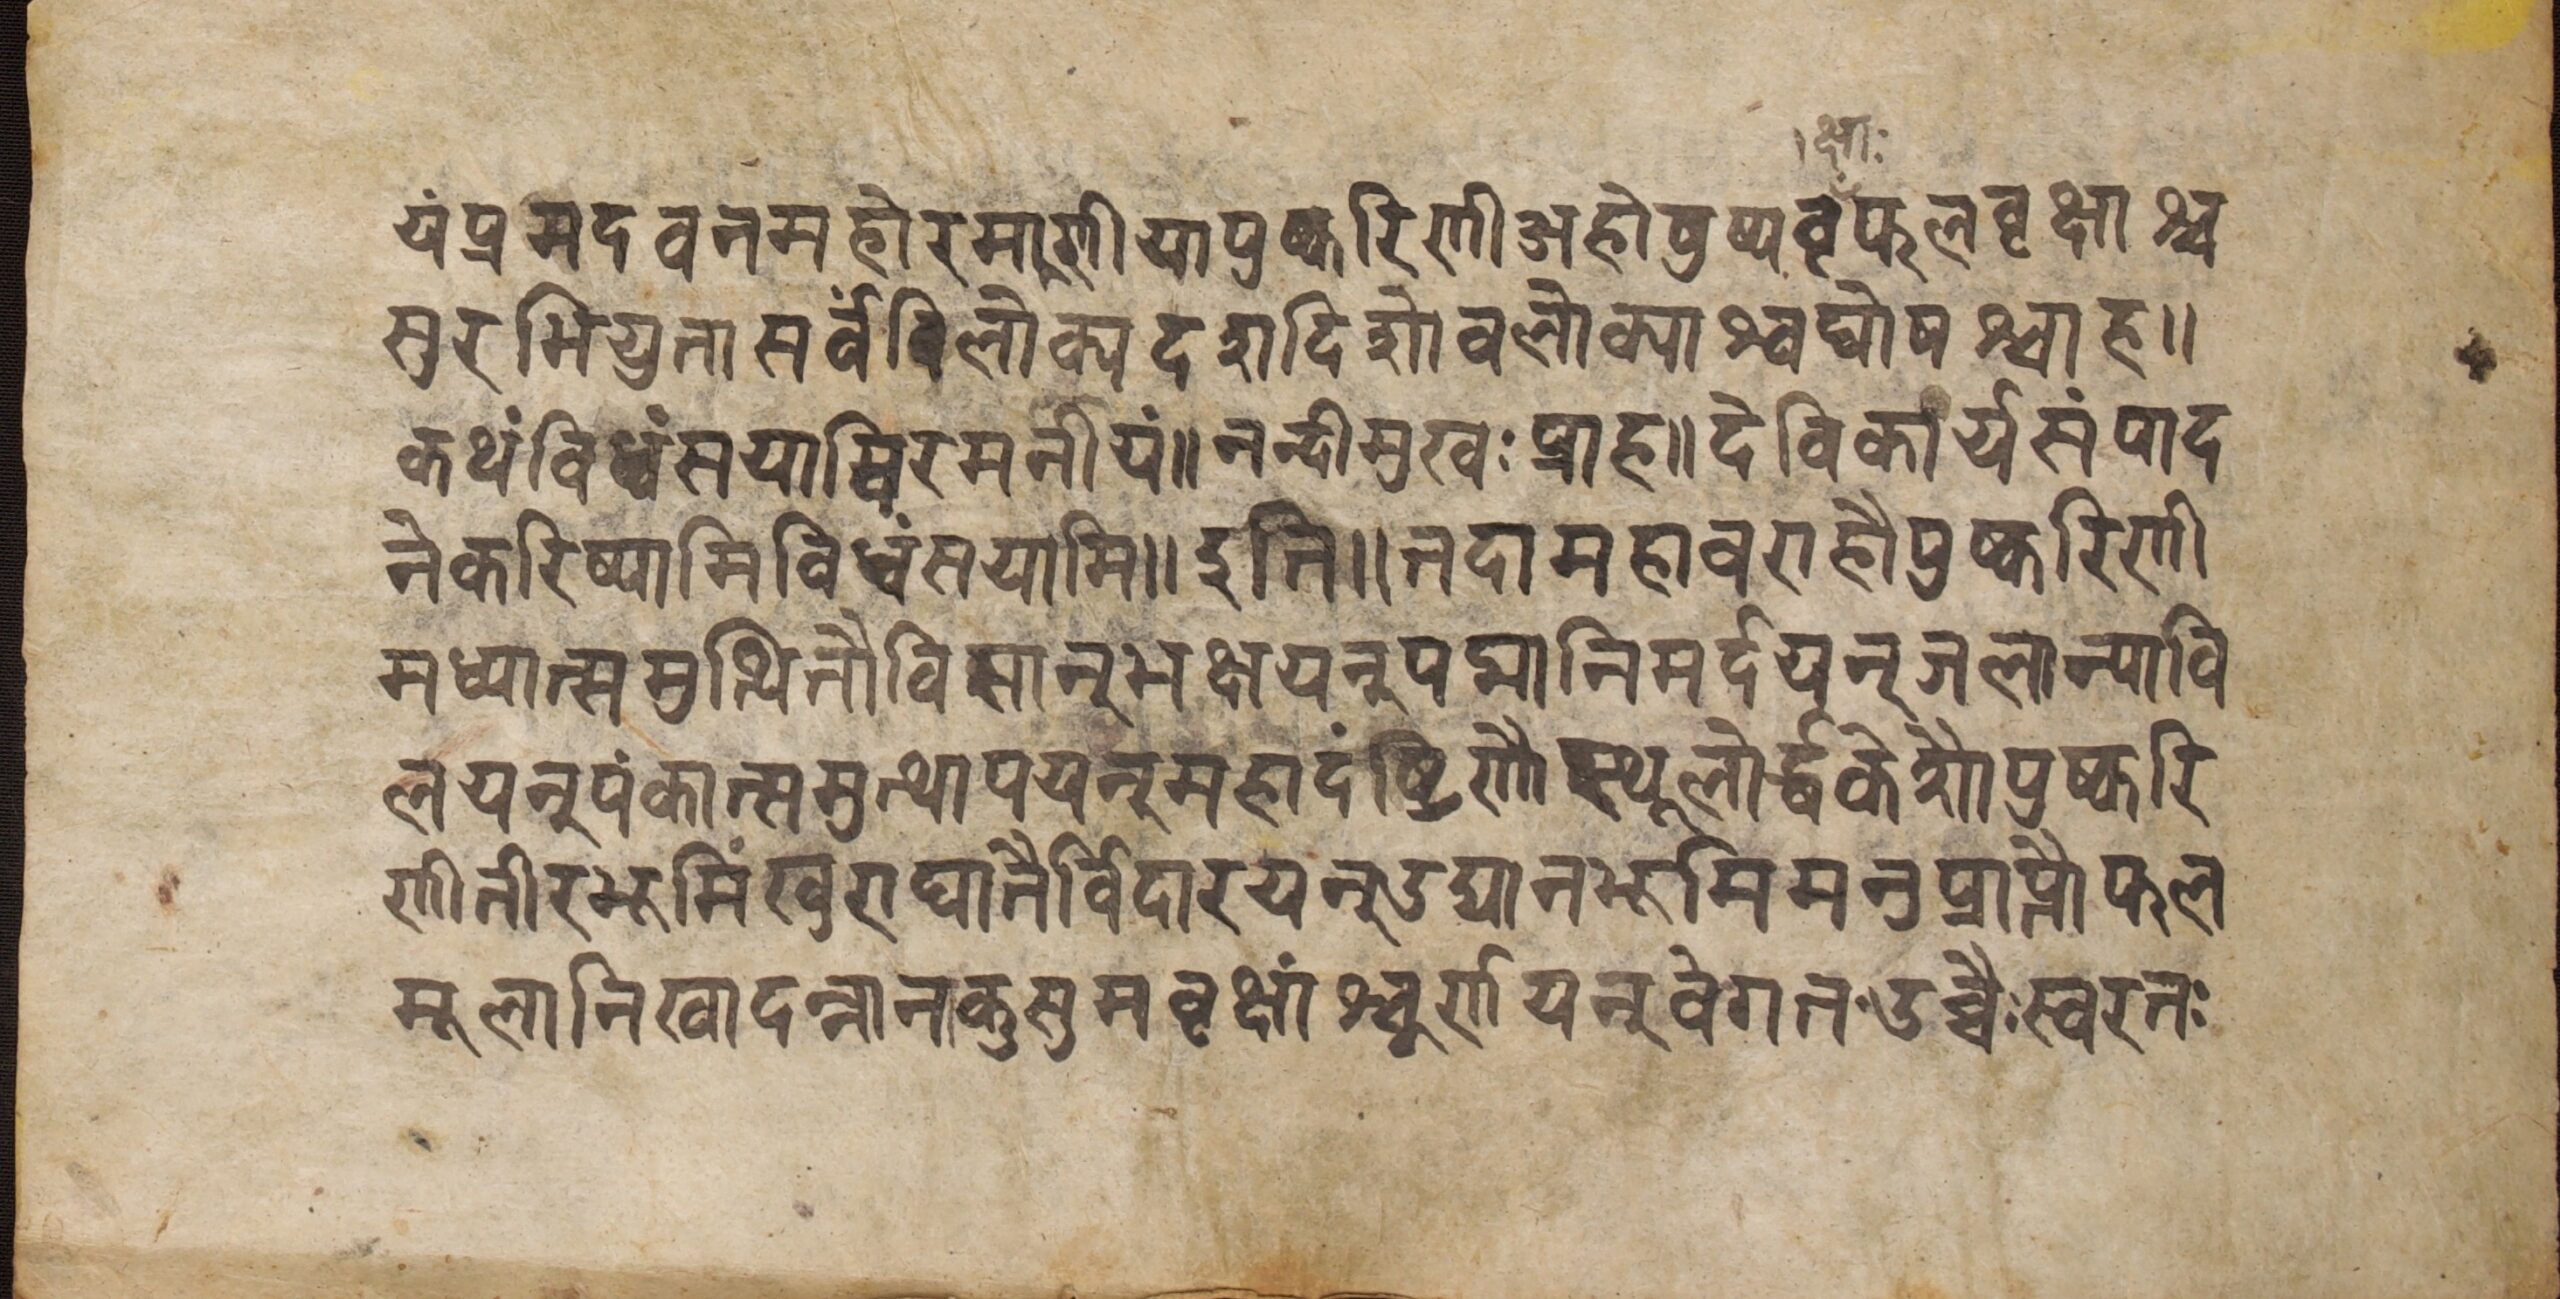 ।क्षाः
यंप्रमदवनमहोरमाणीयापुष्करिणीअहोपुष्पवृफलवृक्षाश्च
सुरभियुतासर्वंविलोक्यदशदिशोवलोक्याश्वघोषश्चाह॥
कथंविध्वंसयाम्विरमनीयं॥नन्दीमुखःप्राह॥देविकार्यसंपाद
नेकरिष्यामिविध्वंसयामि॥इति॥तदामहावराहौपुष्करिणी
मध्यात्समुत्थितौविसान्भक्षयन्पद्मानिमर्दयन्जलान्यावि
लयन्पंकान्समुत्थापयन्महादंष्ट्रिणौस्थूलोर्द्ध्वकेशौपुष्करि
णीतीरभूमिंखुराघातैर्विदारयन्उद्यानभूमिमनुप्राप्तौफल
मूलानिखादन्नानाकुसुमवृक्षांश्चूर्णयन्वेगतःउच्चैःस्वरतः